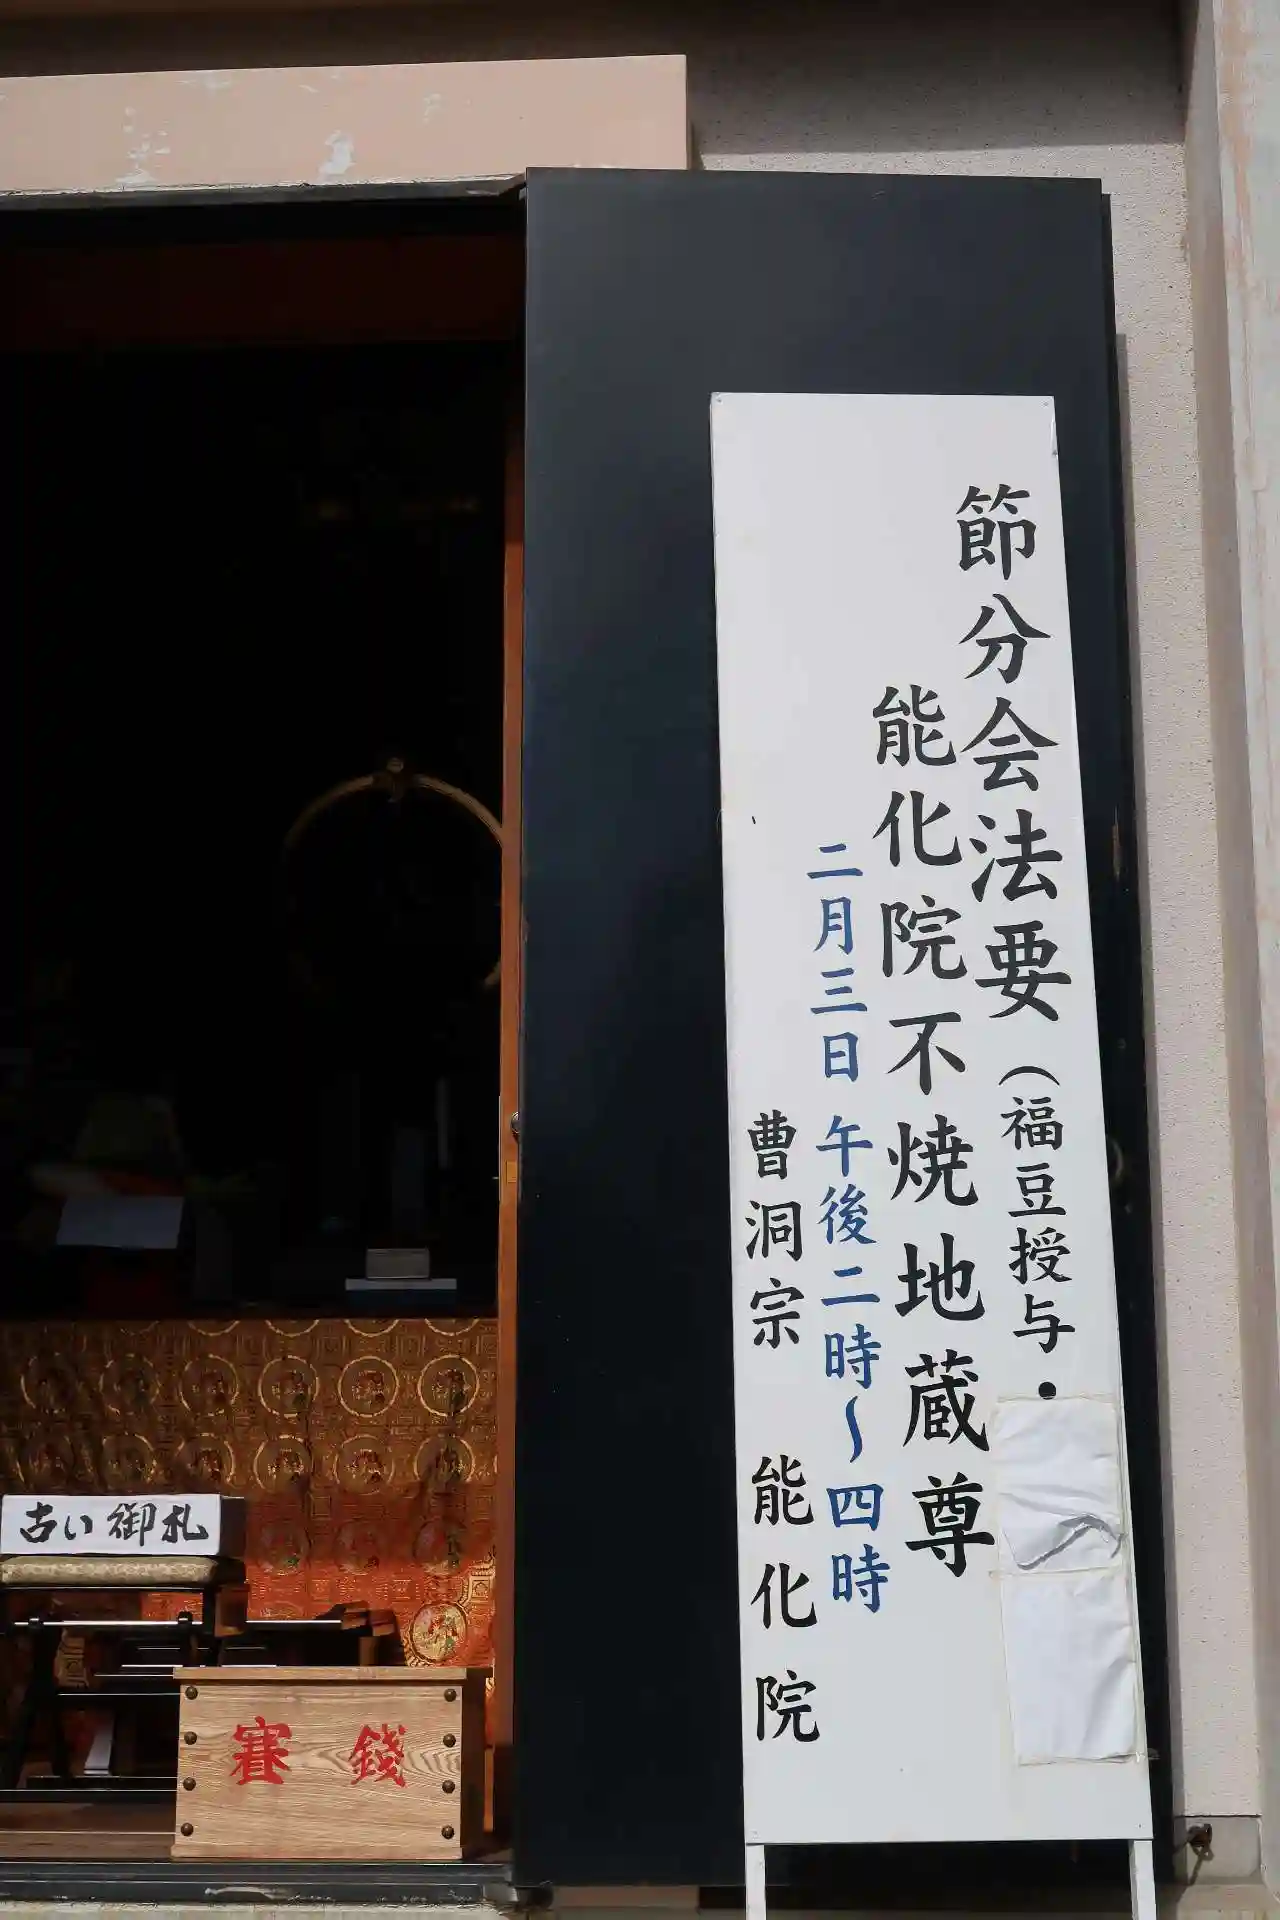 節分会法要（福豆授与・
能化院不焼地蔵尊
二月三日 午後二時～四時
曹洞宗 能化院
古い御札
賽銭